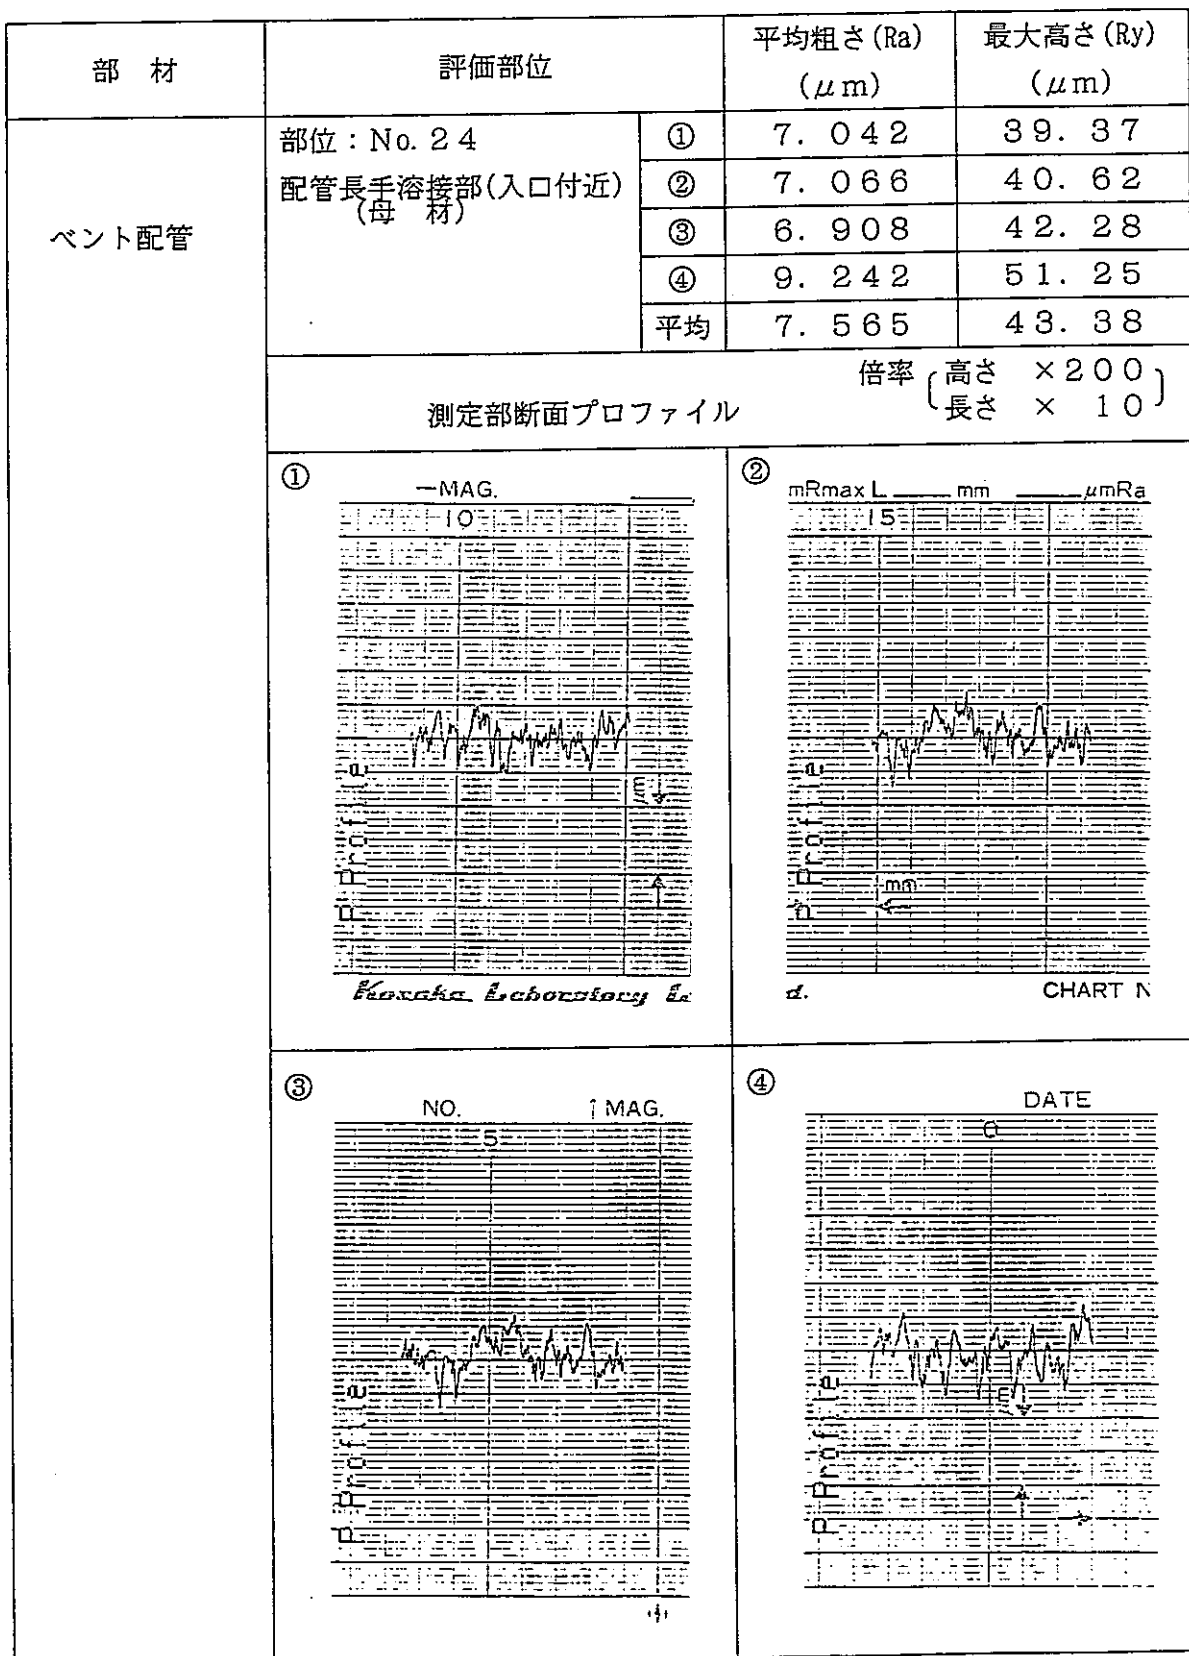 部 材 評価部位 平均粗さ(Ra) (μm) 最大高さ(Ry) (μm)
ベント配管
部位：No. 24
配管長手溶接部(入口付近)
(母 材)
① 7. 042 39. 37
② 7. 066 40. 62
③ 6. 908 42. 28
④ 9. 242 51. 25
平均 7. 565 43. 38
測定部断面プロファイル
倍率 高さ ×200
長さ × 10
①
—MAG.
10
μm
P Profile
Kosaka Laboratory L
②
mRmax L mm μmRa
15
mm
P Profile
d. CHART N
③
NO. ↑MAG.
5
P Profile
④
DATE
0
μm
P Profile